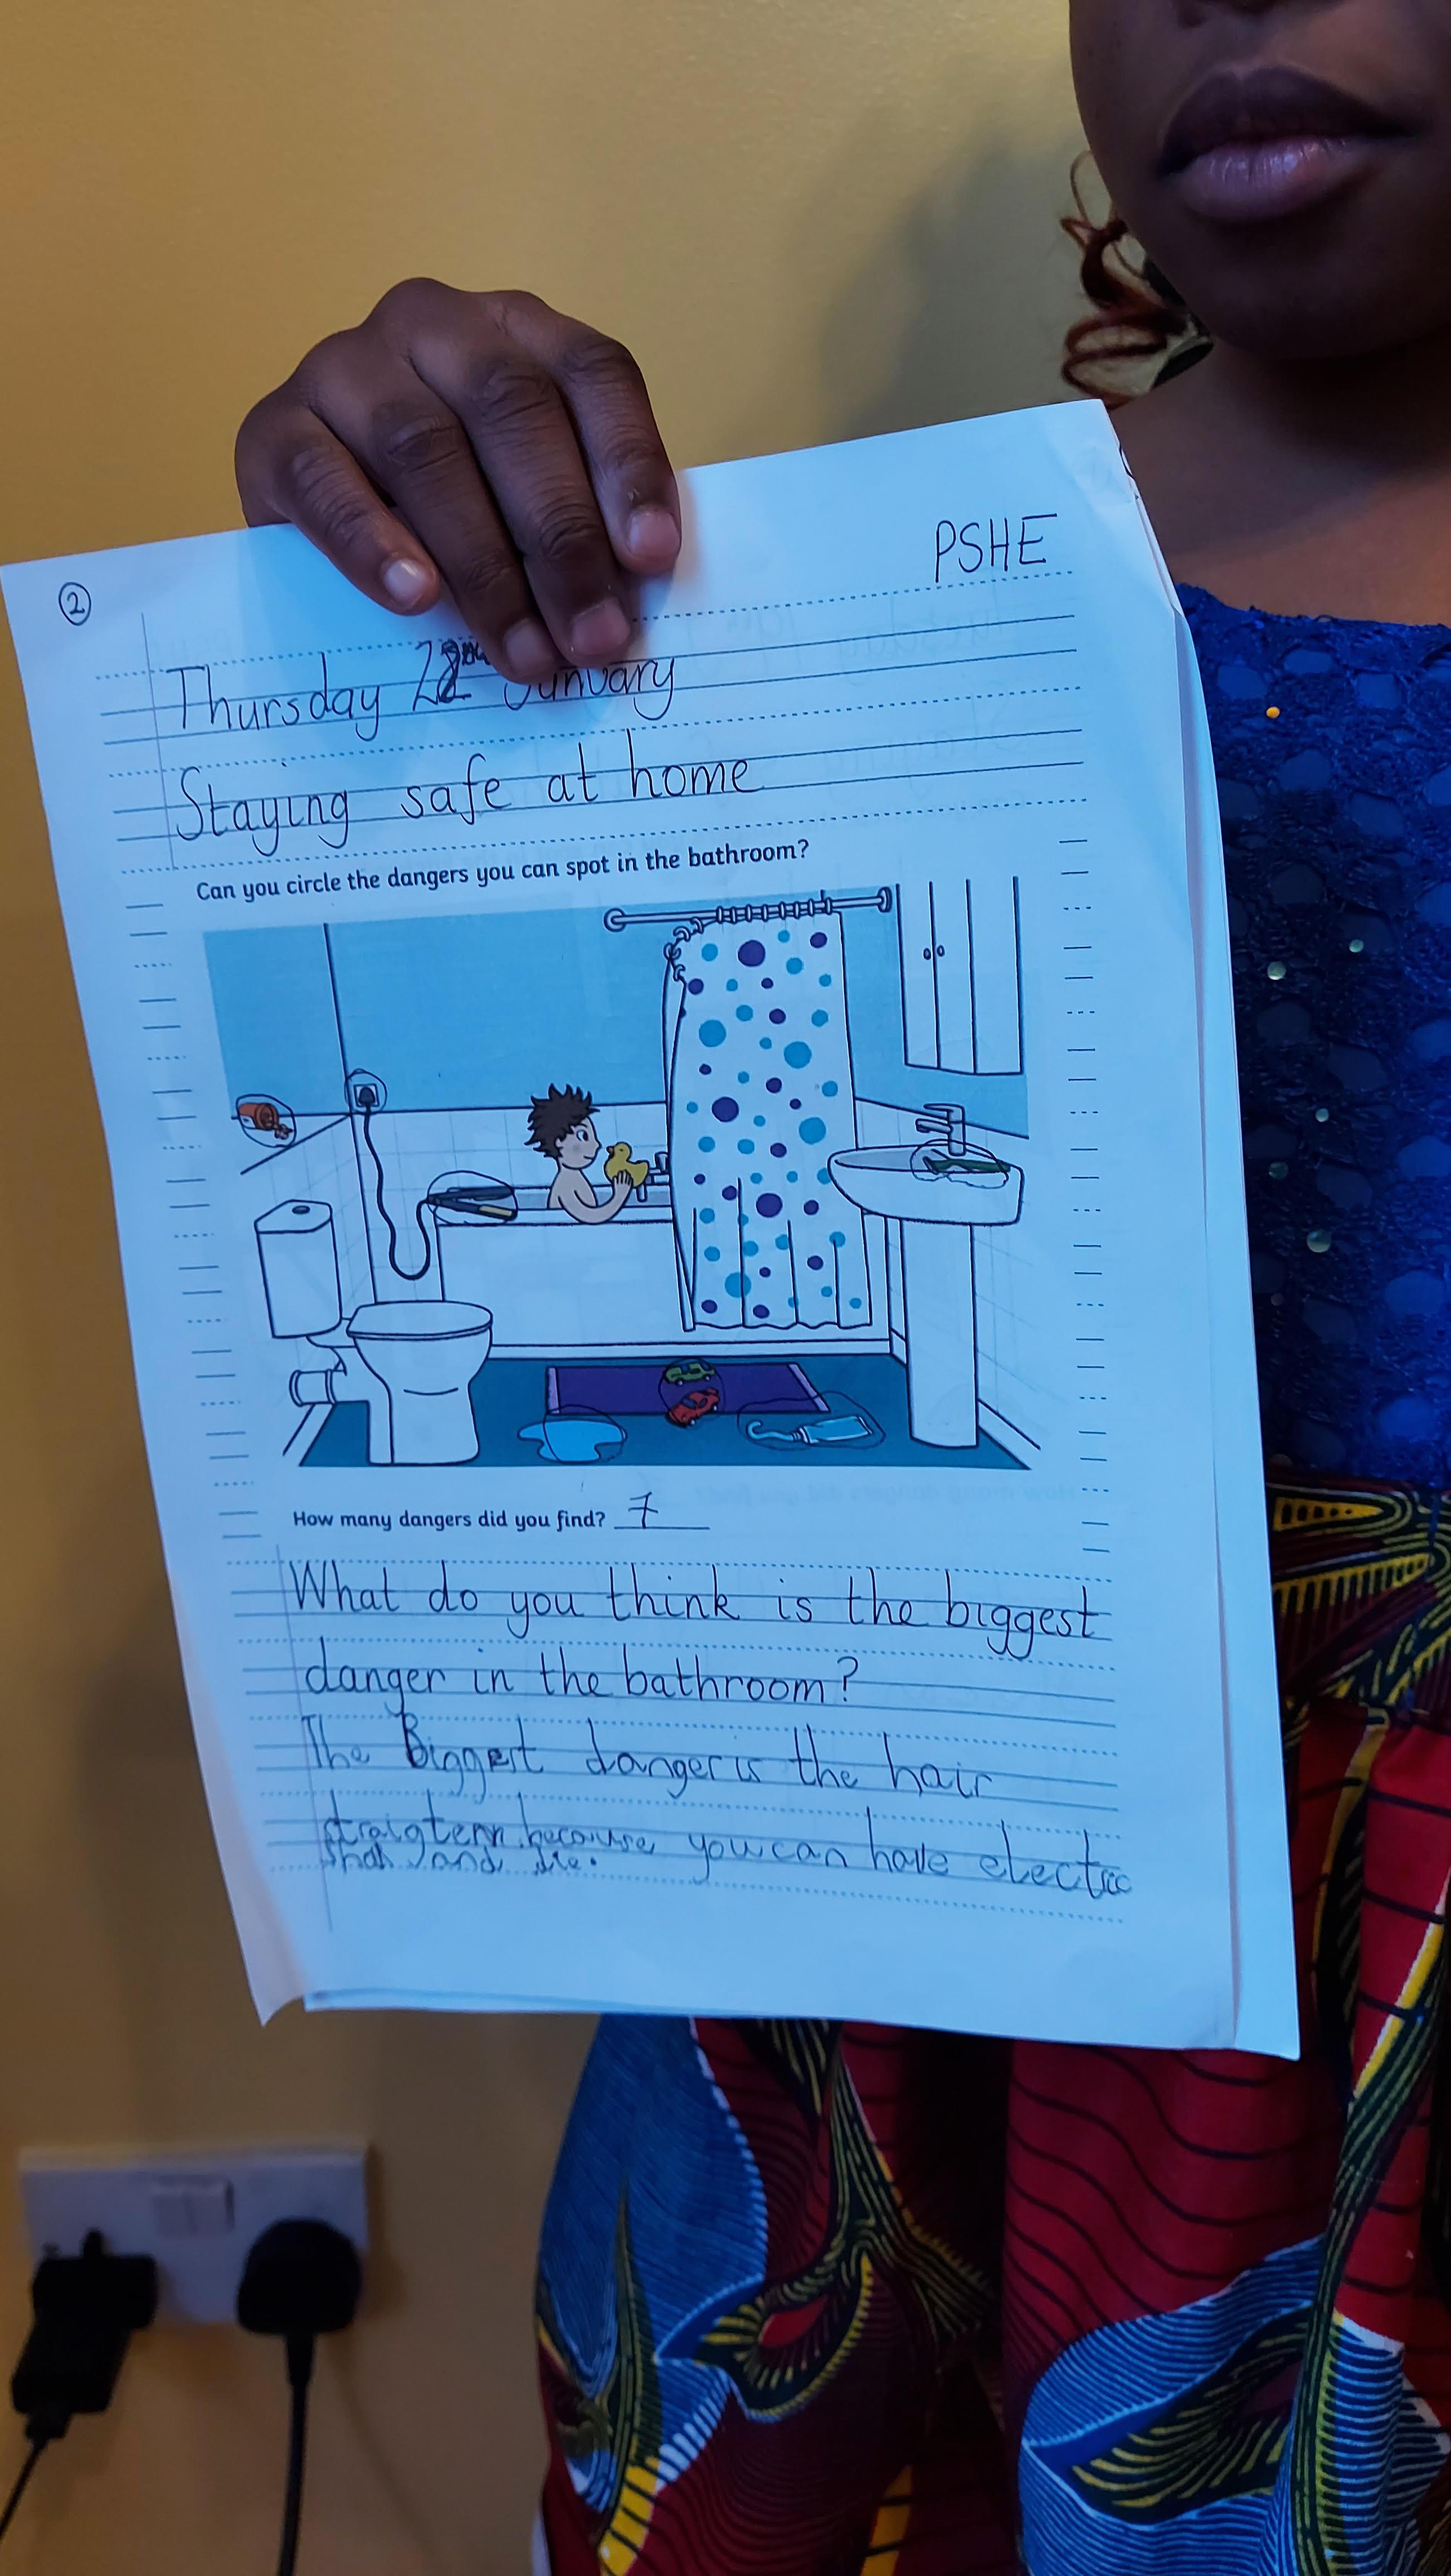 ②
PSHE
Thursday 28th January
Staying safe at home
Can you circle the dangers you can spot in the bathroom?
How many dangers did you find? 7
What do you think is the biggest
danger in the bathroom?
The Biggest danger is the hair
because you can have electric
and die.